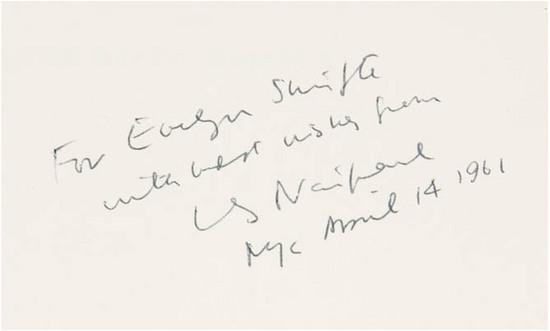 For Evelyn Shrifte
with best wishes from
VS Naipaul
NYC April 14 1961